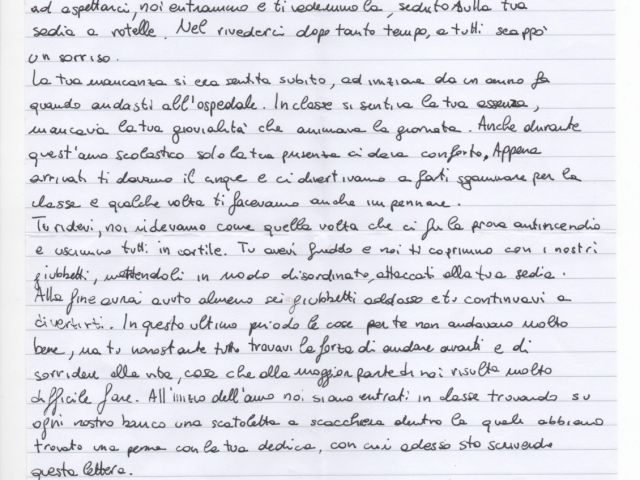 ad aspettarci, noi entrammo e ti vedemmo la, seduto sulla tua
sedia a rotelle. Nel rivederci dopo tanto tempo, a tutti scappò
un sorriso.
La tua mancanza si era sentita subito, ad iniziare da un anno fa
quando andasti all'ospedale. In classe si sentiva la tua assenza,
mancava la tua giovialità che animava la giornata. Anche durante
quest'anno scolastico solo la tua presenza ci dava conforto, Appena
arrivati ti davamo il cinque e ci divertivamo a farti sgommare per la
classe e qualche volta ti facevamo anche impennare.
Tu ridevi, noi ridevamo come quella volta che ci fu la prova antincendio
e uscimmo tutti in cortile. Tu avevi freddo e noi ti coprimmo con i nostri
giubbetti, mettendoli in modo disordinato, attaccati alla tua sedia.
Alla fine avrai avuto almeno sei giubbetti addosso e tu continuavi a
divertirti. In questo ultimo periodo le cose per te non andavano molto
bene, ma tu nonostante tutto trovavi la forza di andare avanti e di
sorridere alla vita, cosa che alla maggior parte di noi risulta molto
difficile fare. All'inizio dell'anno noi siamo entrati in classe trovando su
ogni nostro banco una scatoletta a scacchiera dentro la quale abbiamo
trovato una penna con la tua dedica, con cui adesso sto scrivendo
questa lettera.